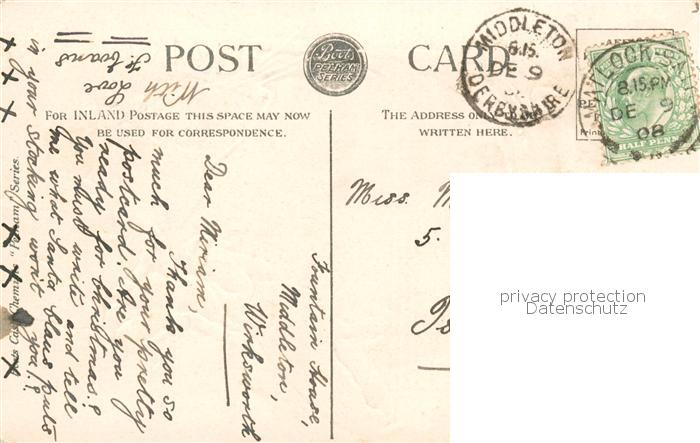 POST CARD
Boots
PELHAM
SERIES
FOR INLAND POSTAGE THIS SPACE MAY NOW
BE USED FOR CORRESPONDENCE.
THE ADDRESS ONLY
WRITTEN HERE.
MIDDLETON
8.15
DE 9
DERBYSHIRE
MATLOCK
8.15.PM
DE 9
08
HALF PENNY
Fountain House,
Middleton,
Wirksworth
Dear Miriam,
Thank you so
much for your pretty
postcard. Are you
ready for Christmas?
You must wait and tell
me what Santa Claus puts
in your stocking won't you!?
With
Love
F. Evans
x x x x x x x
Miss. M
5.
Is
"Pelham" Series.
privacy protection
Datenschutz